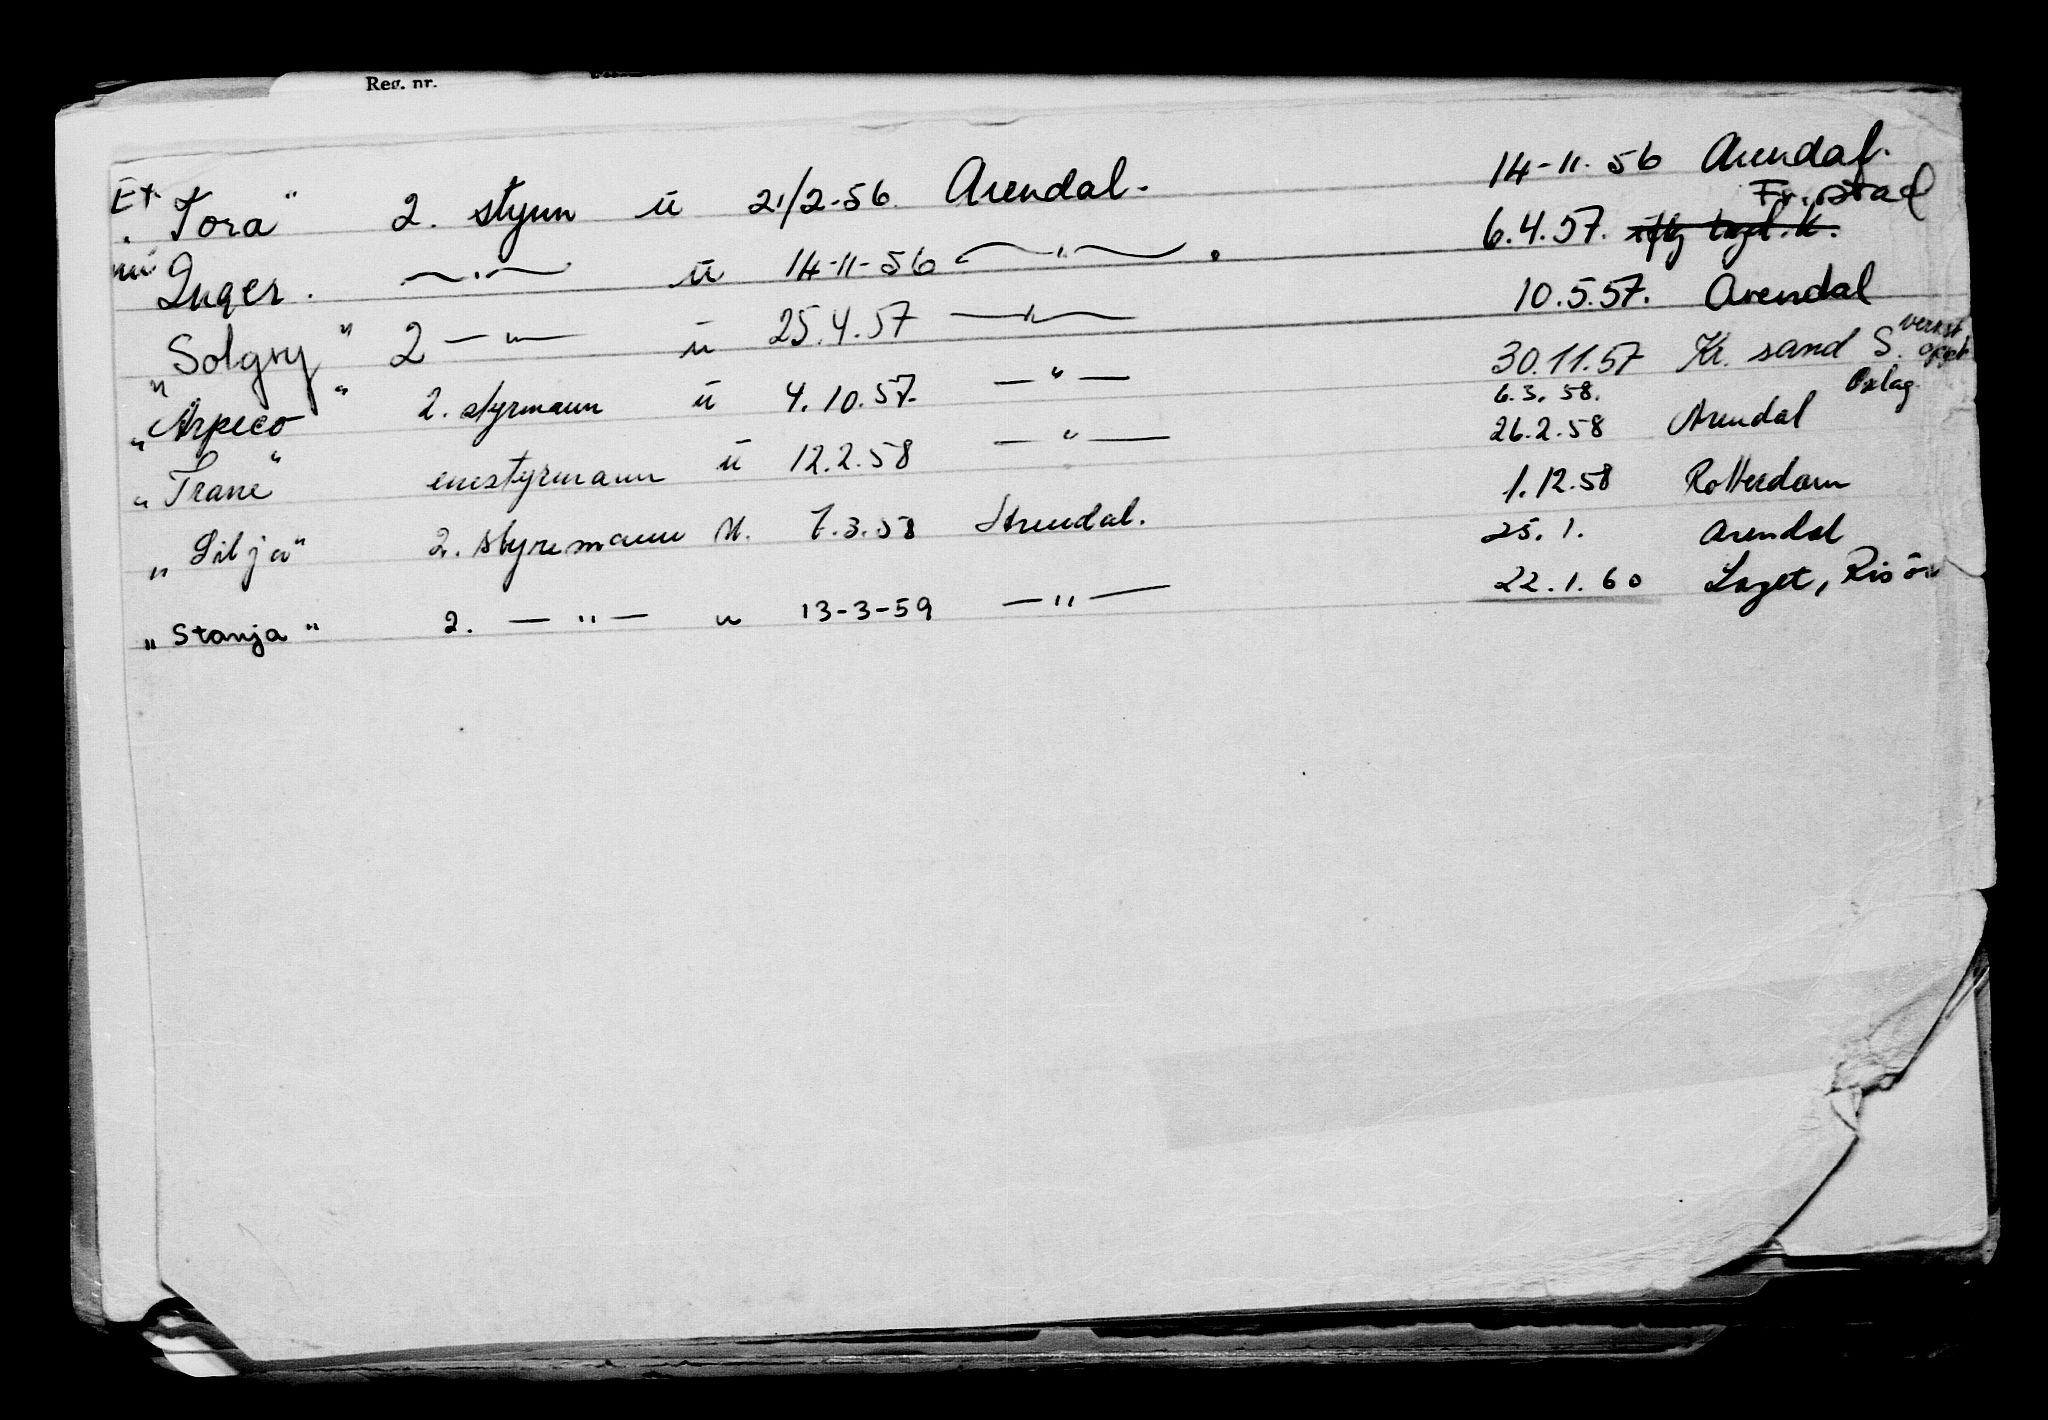 Reg. nr.
Et. "Tora" 2. styrm u 21/2-56 Arendal. 14-11-56 Arendal.
Fr.stad
Inger. —"— u 14-11-56 —"— 6.4.57.
Solgry" 2 —"— u 25.4.57 —"— 10.5.57. Arendal
"Arpeco" 2. styrmann u 4.10.57. —"— 30.11.57 Kr. sand S.
6.3.58.
"Trane" enestyrmann u 12.2.58 —"— 26.2.58 Arendal
"Silja" 2. styremann u. 7.3.58 Arendal. 1.12.58 Rotterdam
25.1. Arendal
"Stanja" 2. —"— u 13-3-59 —"— 22.1.60 Laget, Risör